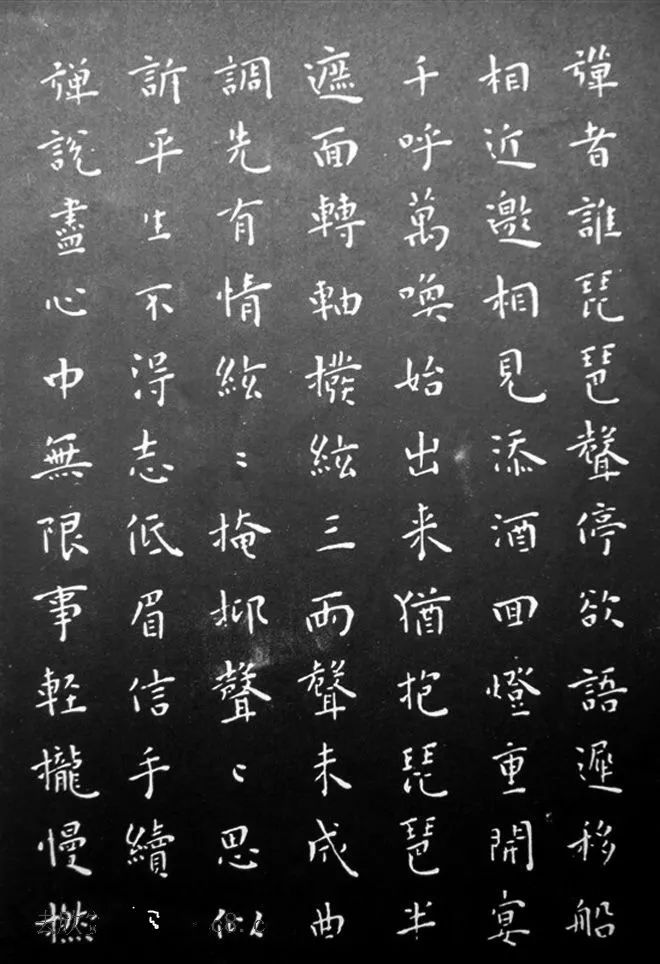 彈者誰琵琶聲停欲語遲移船
相近邀相見添酒囬燈重開宴
千呼萬喚始出来猶抱琵琶半
遮面轉軸撥絃三兩聲未成曲
調先有情絃〻掩抑聲〻思似
訴平生不得志低眉信手續〻
彈說盡心中無限事軽攏慢撚